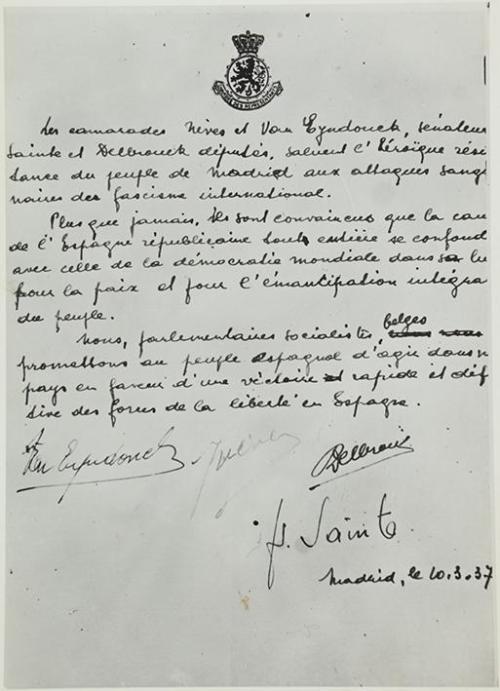 CHAMBRE DES REPRÉSENTANTS
Les camarades Nèves et Van Eyndonck, sénateur
Sainte et Delbrouck députés, saluent l'héroïque rési
tance du peuple de Madrid aux attaques sangi
naires des fascisme international.
Plus que jamais, ils sont convaincus que la cau
de l'Espagne républicaine toute entière se confond
avec celle de la démocratie mondiale dans sa lu
pour la paix et pour l'émancipation intégra
du peuple.
Nous, parlementaires socialistes, belges
promettons au peuple espagnol d'agir dans n
pays en faveur d'une victoire et rapide et déf
tive des forces de la liberté en Espagne.
Van Eyndonck
Delbrouck
f. Sainte
Madrid, le 10.3.37